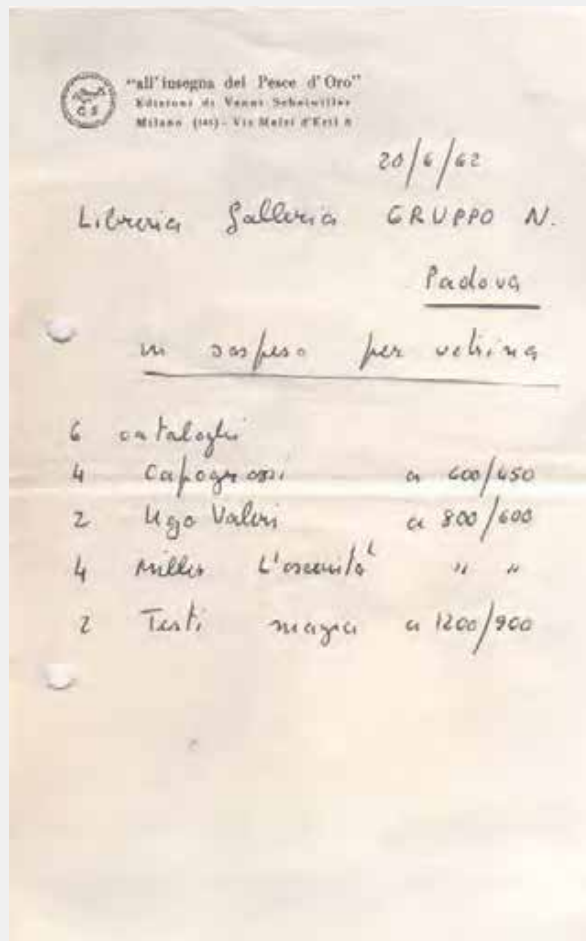 "all'insegna del Pesce d'Oro"
Edizioni di Vanni Scheiwiller
Milano (141) - Via Melzi d'Eril 6
C S
20/6/62
Libreria Galleria GRUPPO N.
Padova
in sospeso per vetrina
6 cataloghi
4 Capogrossi a 600/450
2 Ugo Valeri a 800/600
4 Miller L'oscenità " "
2 Testi a 1200/900